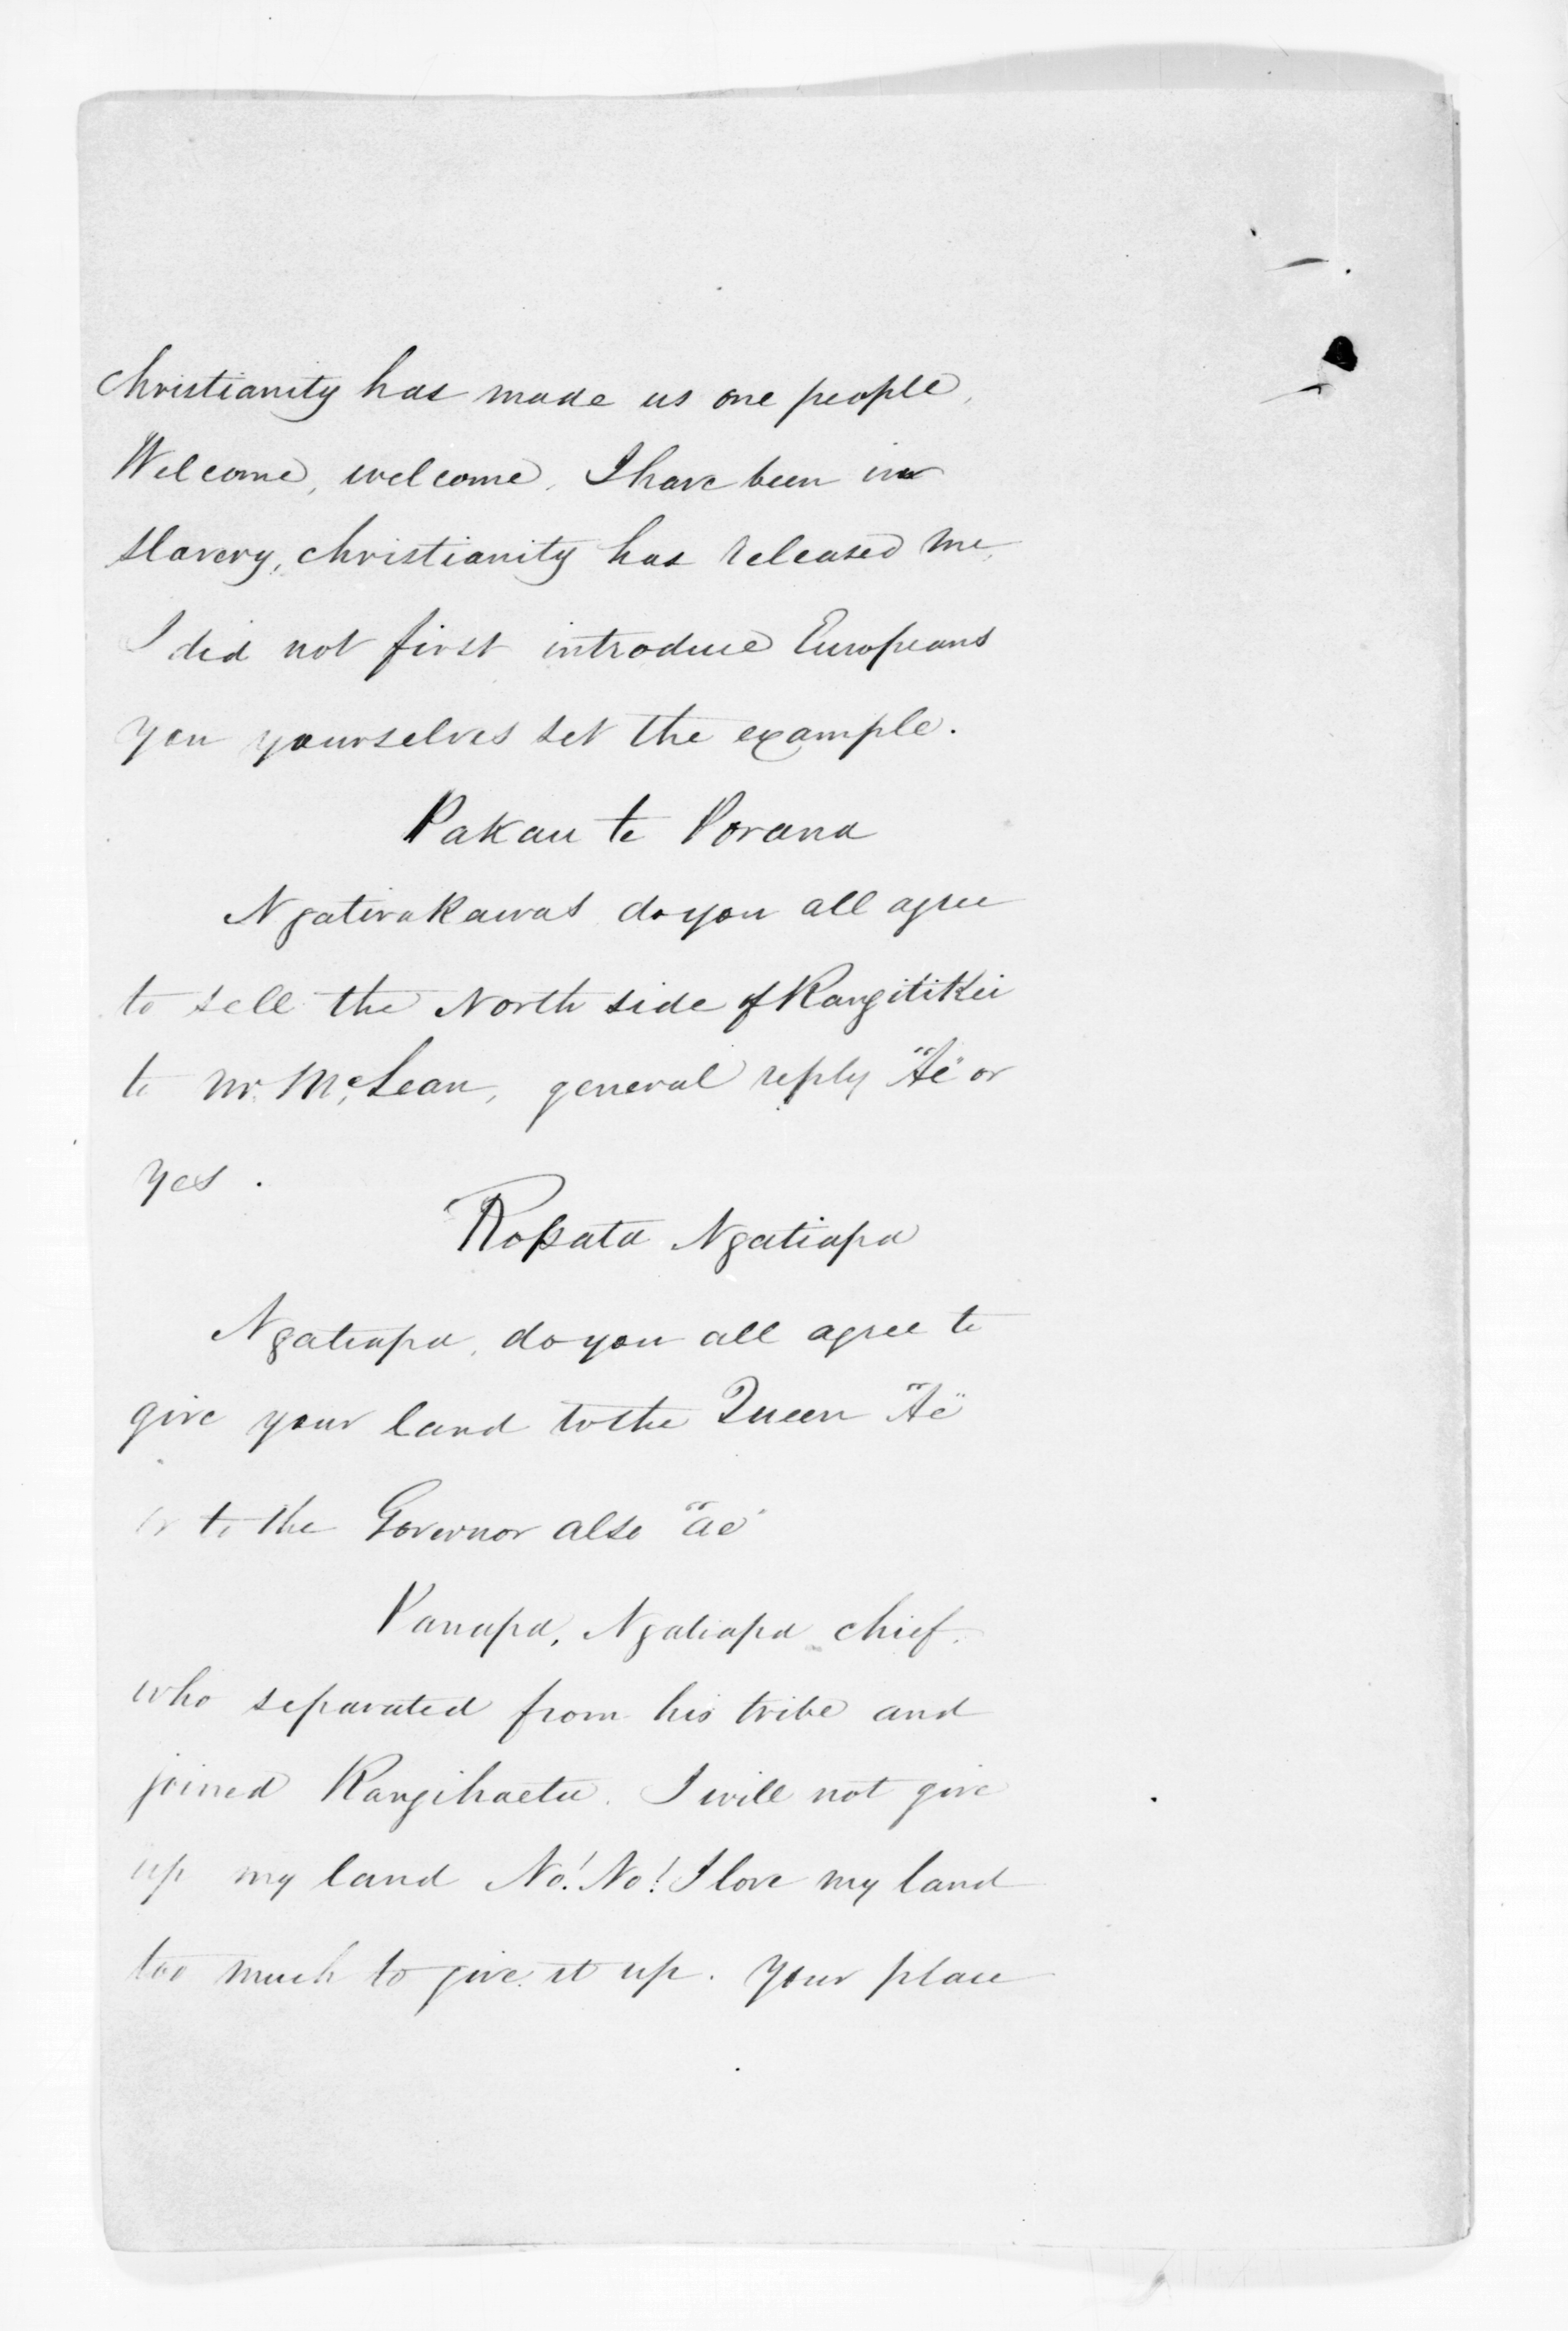 Christianity has made us one people,
Welcome, welcome. I have been in
slavery, christianity has released me,
I did not first introduce Europeans
you yourselves set the example.
Pakau te Porana
Ngatirakawas do you all agree
to sell the North side of Rangitikei
to Mr. McLean, general reply "Ae" or
yes.
Ropata Ngatiapa
Ngatiapa, do you all agree to
give your land to the Queen "Ae"
or to the Governor also "ae"
Panapa, Ngatiapa chief,
who separated from his tribe and
joined Rangihaeta. I will not give
up my land No! No! I love my land
too much to give it up. Your place